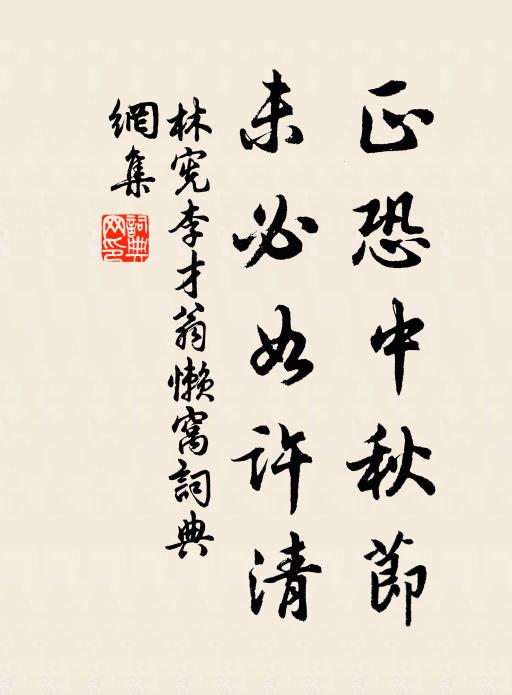 正恐中秋節
未必如許清
林宪李才翁懒窩詞典
網集
詞典網印